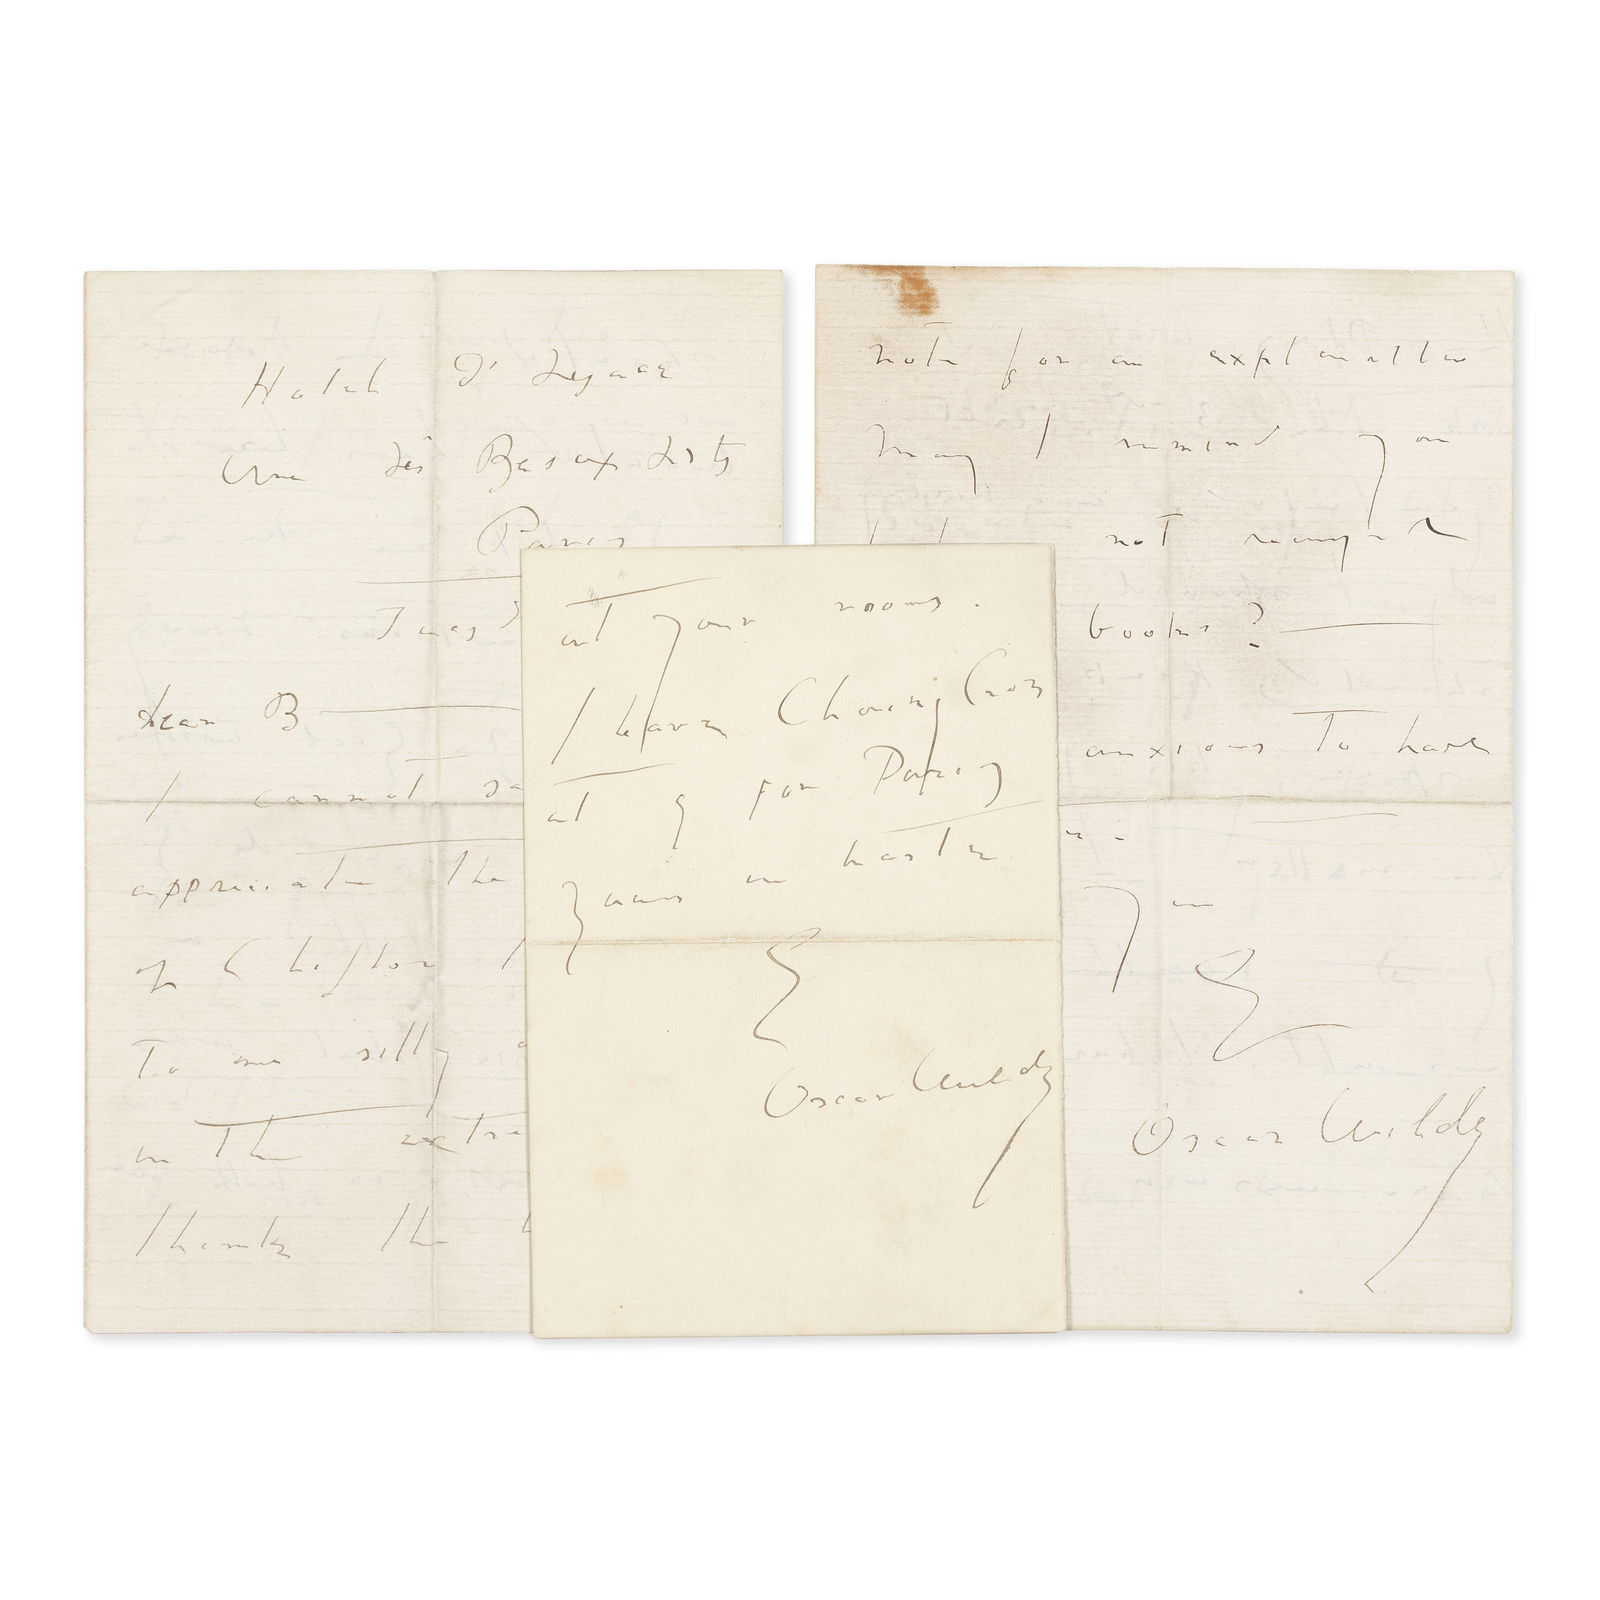 Hotel D'Alsace
Rue des Beaux Arts
Paris
Tuesd
Dear B
I cannot
appreciate the
of
To me silly
in the extre
thanks the
at your rooms.
I leave Charing Cross
at 9 for Paris
Yours in haste
Oscar Wilde
note for an explanation
may I remind you
not
books?
anxious to have
Oscar Wilde